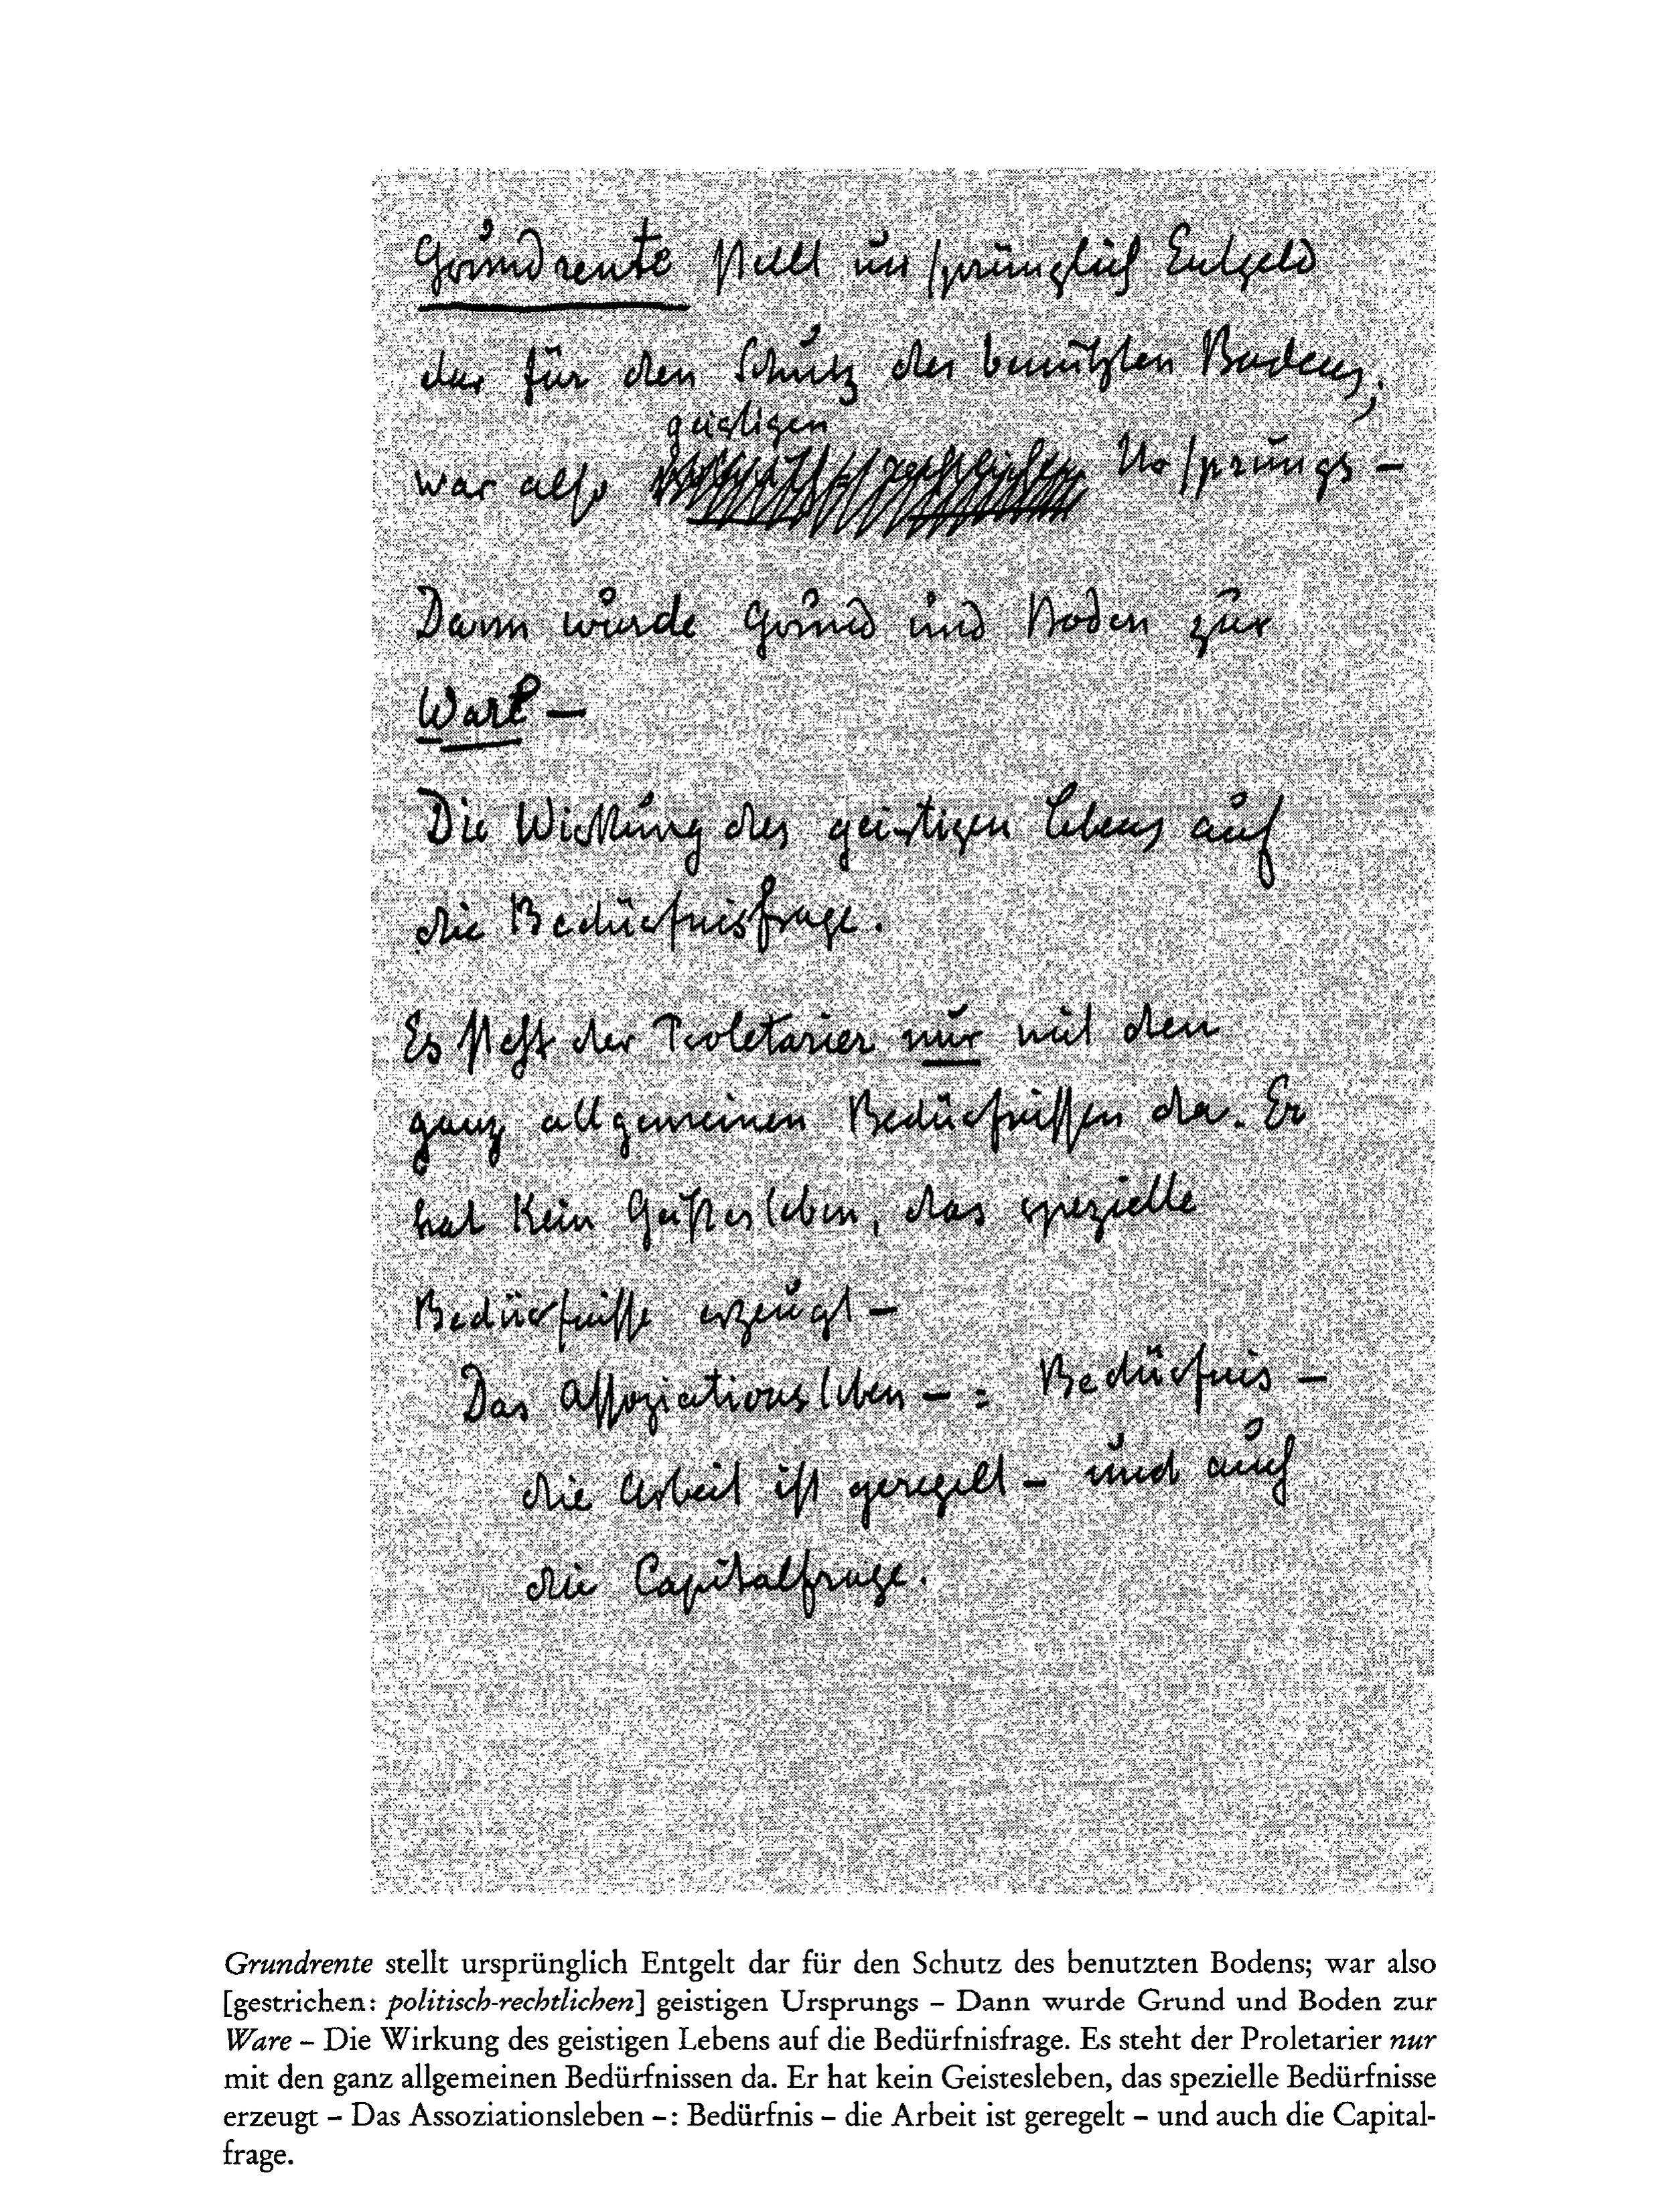 Grundrente stellt ursprünglich Entgeld
dar für den Schutz des benützten Bodens;
geistigen
war also politisch-rechtlichen Ursprungs –
Dann wurde Grund und Boden zur
Ware –
Die Wirkung des geistigen Lebens auf
die Bedürfnisfrage.
Es steht der Proletarier nur mit den
ganz allgemeinen Bedürfnissen da. Er
hat kein Geistesleben, das spezielle
Bedürfnisse erzeugt –
Das Assoziationsleben – : Bedürfnis –
die Arbeit ist geregelt – und auf
die Capitalfrage.
Grundrente stellt ursprünglich Entgelt dar für den Schutz des benutzten Bodens; war also
[gestrichen: politisch-rechtlichen] geistigen Ursprungs – Dann wurde Grund und Boden zur
Ware – Die Wirkung des geistigen Lebens auf die Bedürfnisfrage. Es steht der Proletarier nur
mit den ganz allgemeinen Bedürfnissen da. Er hat kein Geistesleben, das spezielle Bedürfnisse
erzeugt – Das Assoziationsleben –: Bedürfnis – die Arbeit ist geregelt – und auch die Capital-
frage.